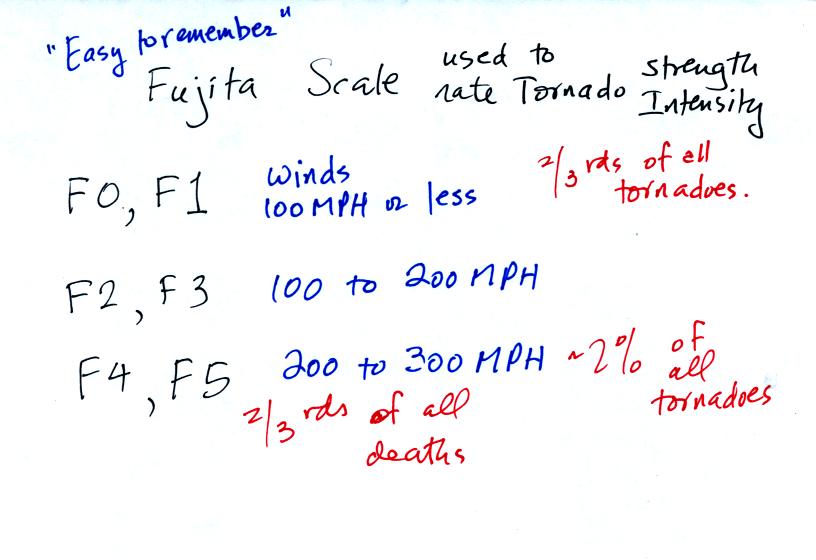 "Easy to remember"
Fujita Scale used to rate Tornado strength Intensity
F0, F1 winds 100 MPH or less 2/3 rds of all tornadoes.
F2, F3 100 to 200 MPH
F4, F5 200 to 300 MPH ~2% of all tornadoes
2/3 rds of all deaths